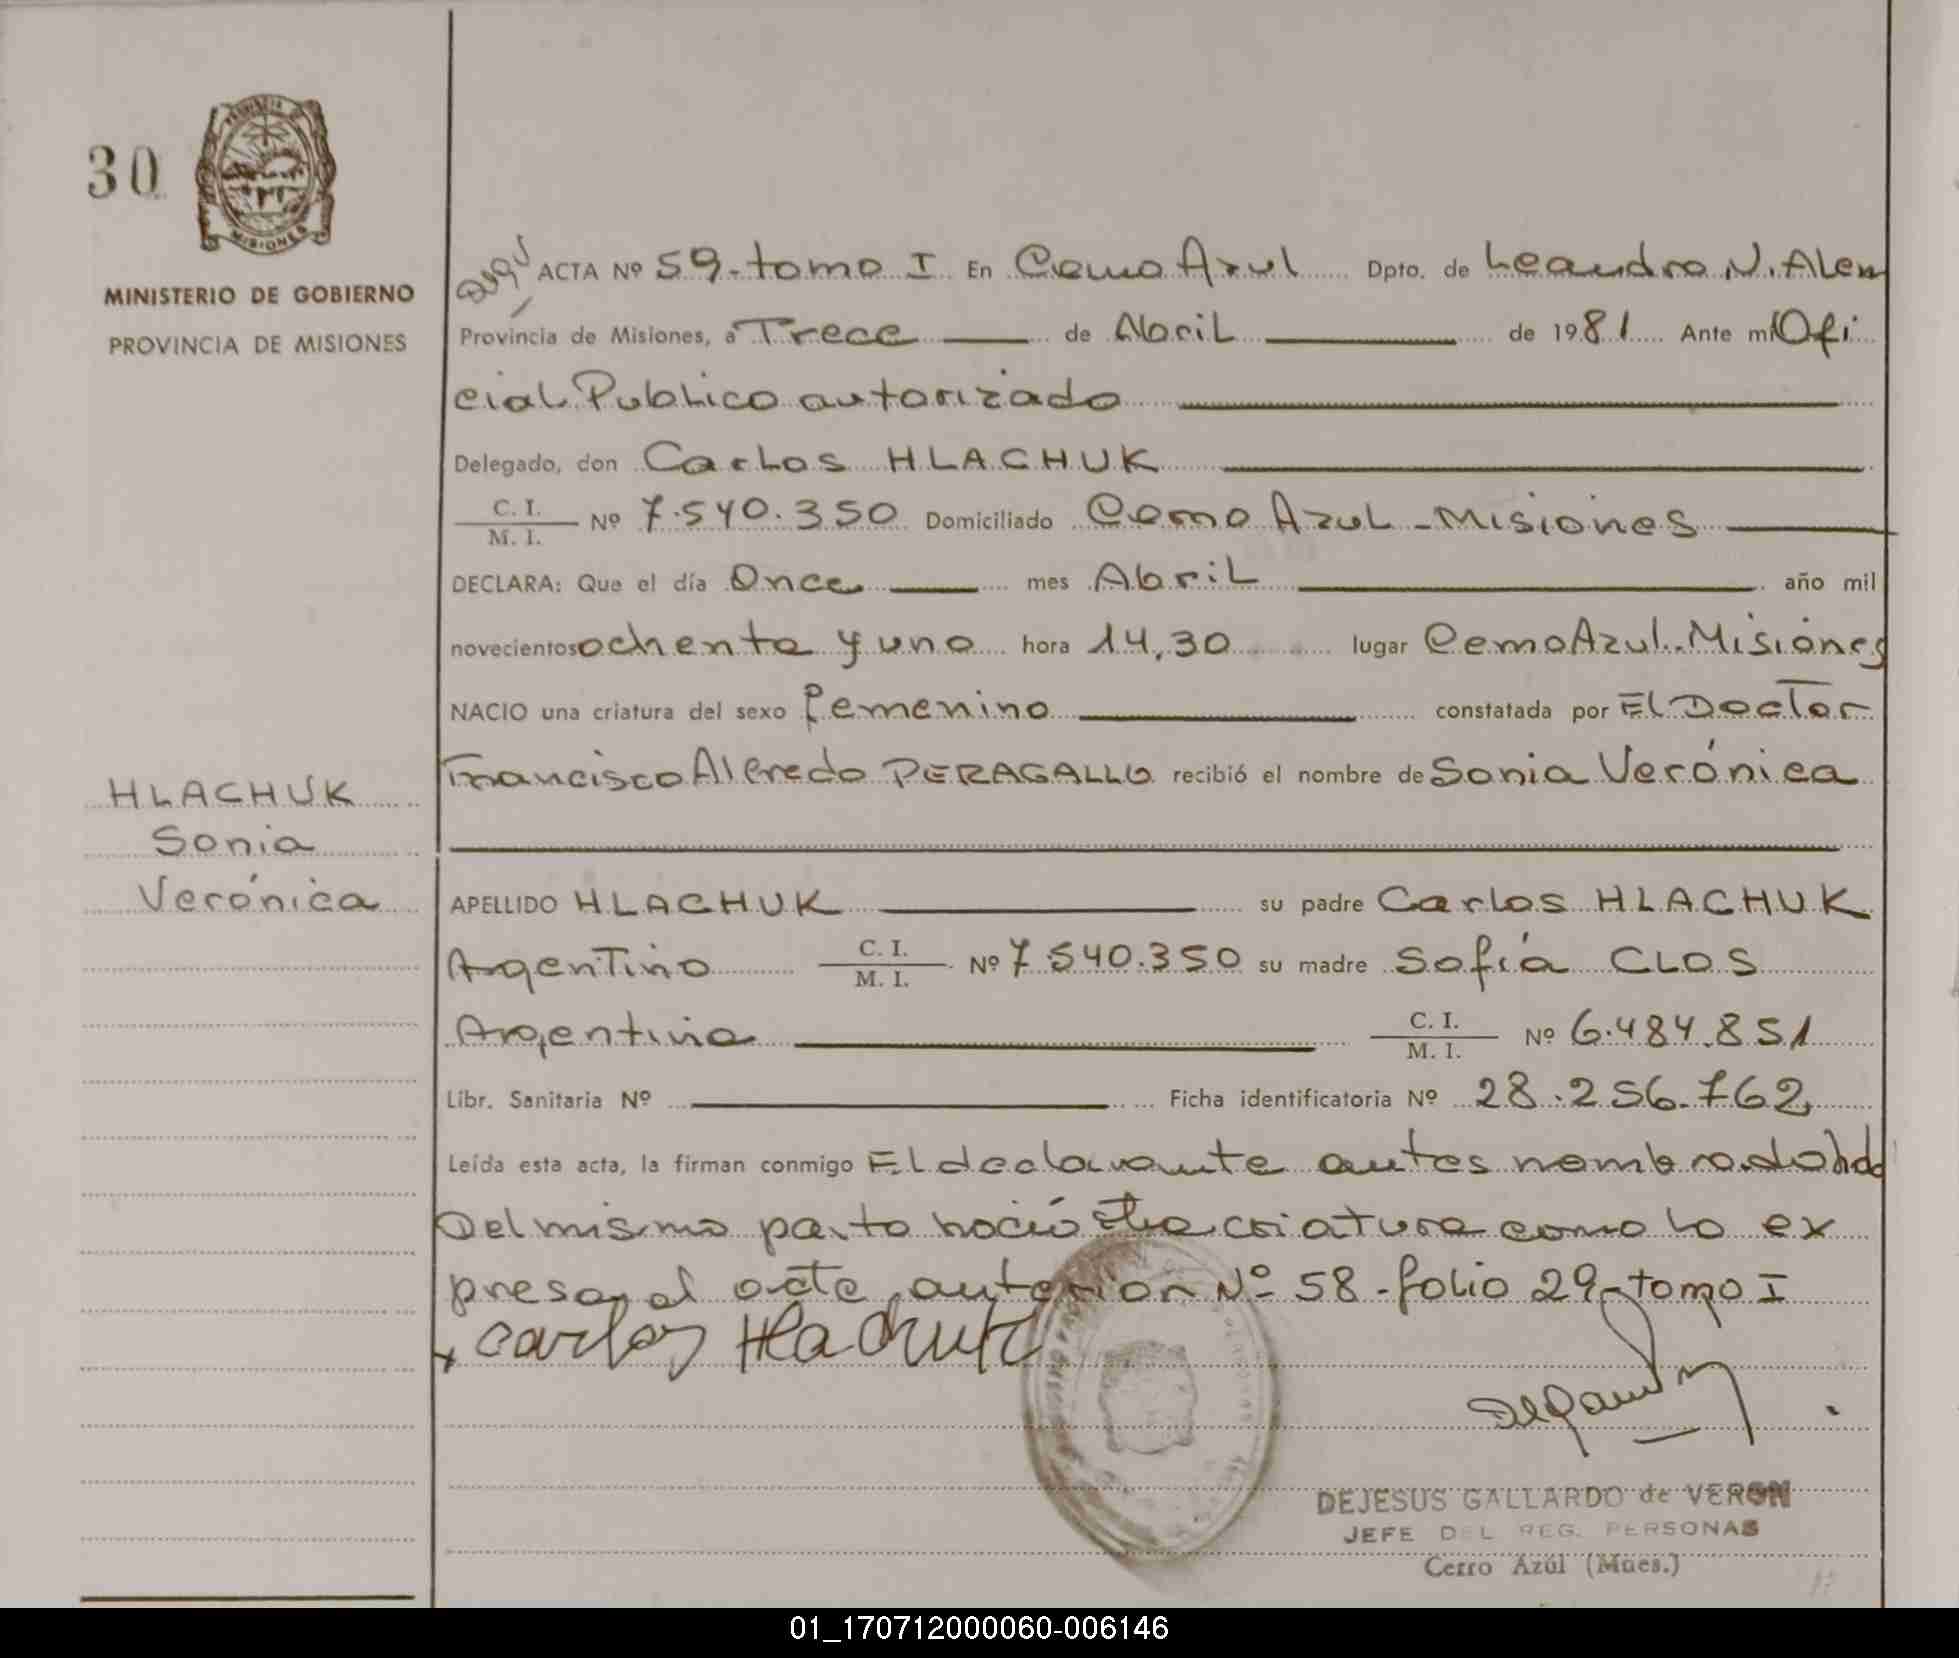 30
MISIONES
MINISTERIO DE GOBIERNO
PROVINCIA DE MISIONES
HLACHUK
Sonia
Verónica
ACTA Nº 59-tomo I En Cerro Azul Dpto. de Leandro N. Alem
Provincia de Misiones, a Trece de Abril de 1981 Ante mi Ofi
cial Publico autorizado
Delegado, don Carlos HLACHUK
C. I.
M. I. Nº 7.540.350 Domiciliado Cerro Azul - Misiones
DECLARA: Que el día Once mes Abril año mil
novecientos ochenta y uno hora 14,30 lugar Cerro Azul-Misiones
NACIO una criatura del sexo femenino constatada por El Doctor
Francisco Alfredo PERAGALLO recibió el nombre de Sonia Verónica
APELLIDO HLACHUK su padre Carlos HLACHUK
Argentino C. I.
M. I. Nº 7.540.350 su madre Sofía CLOS
Argentina C. I.
M. I. Nº 6.484.851
Libr. Sanitaria Nº Ficha identificatoria Nº 28.256.762
Leída esta acta, la firman conmigo El declarante antes nombrado
Del mismo parto nació otra criatura como lo ex
presa el acta anterior Nº 58-folio 29-tomo I
Carlos Hlachuk
DEJESUS GALLARDO de VERON
JEFE DEL REG. PERSONAS
Cerro Azúl (Mnes.)
01_170712000060-006146